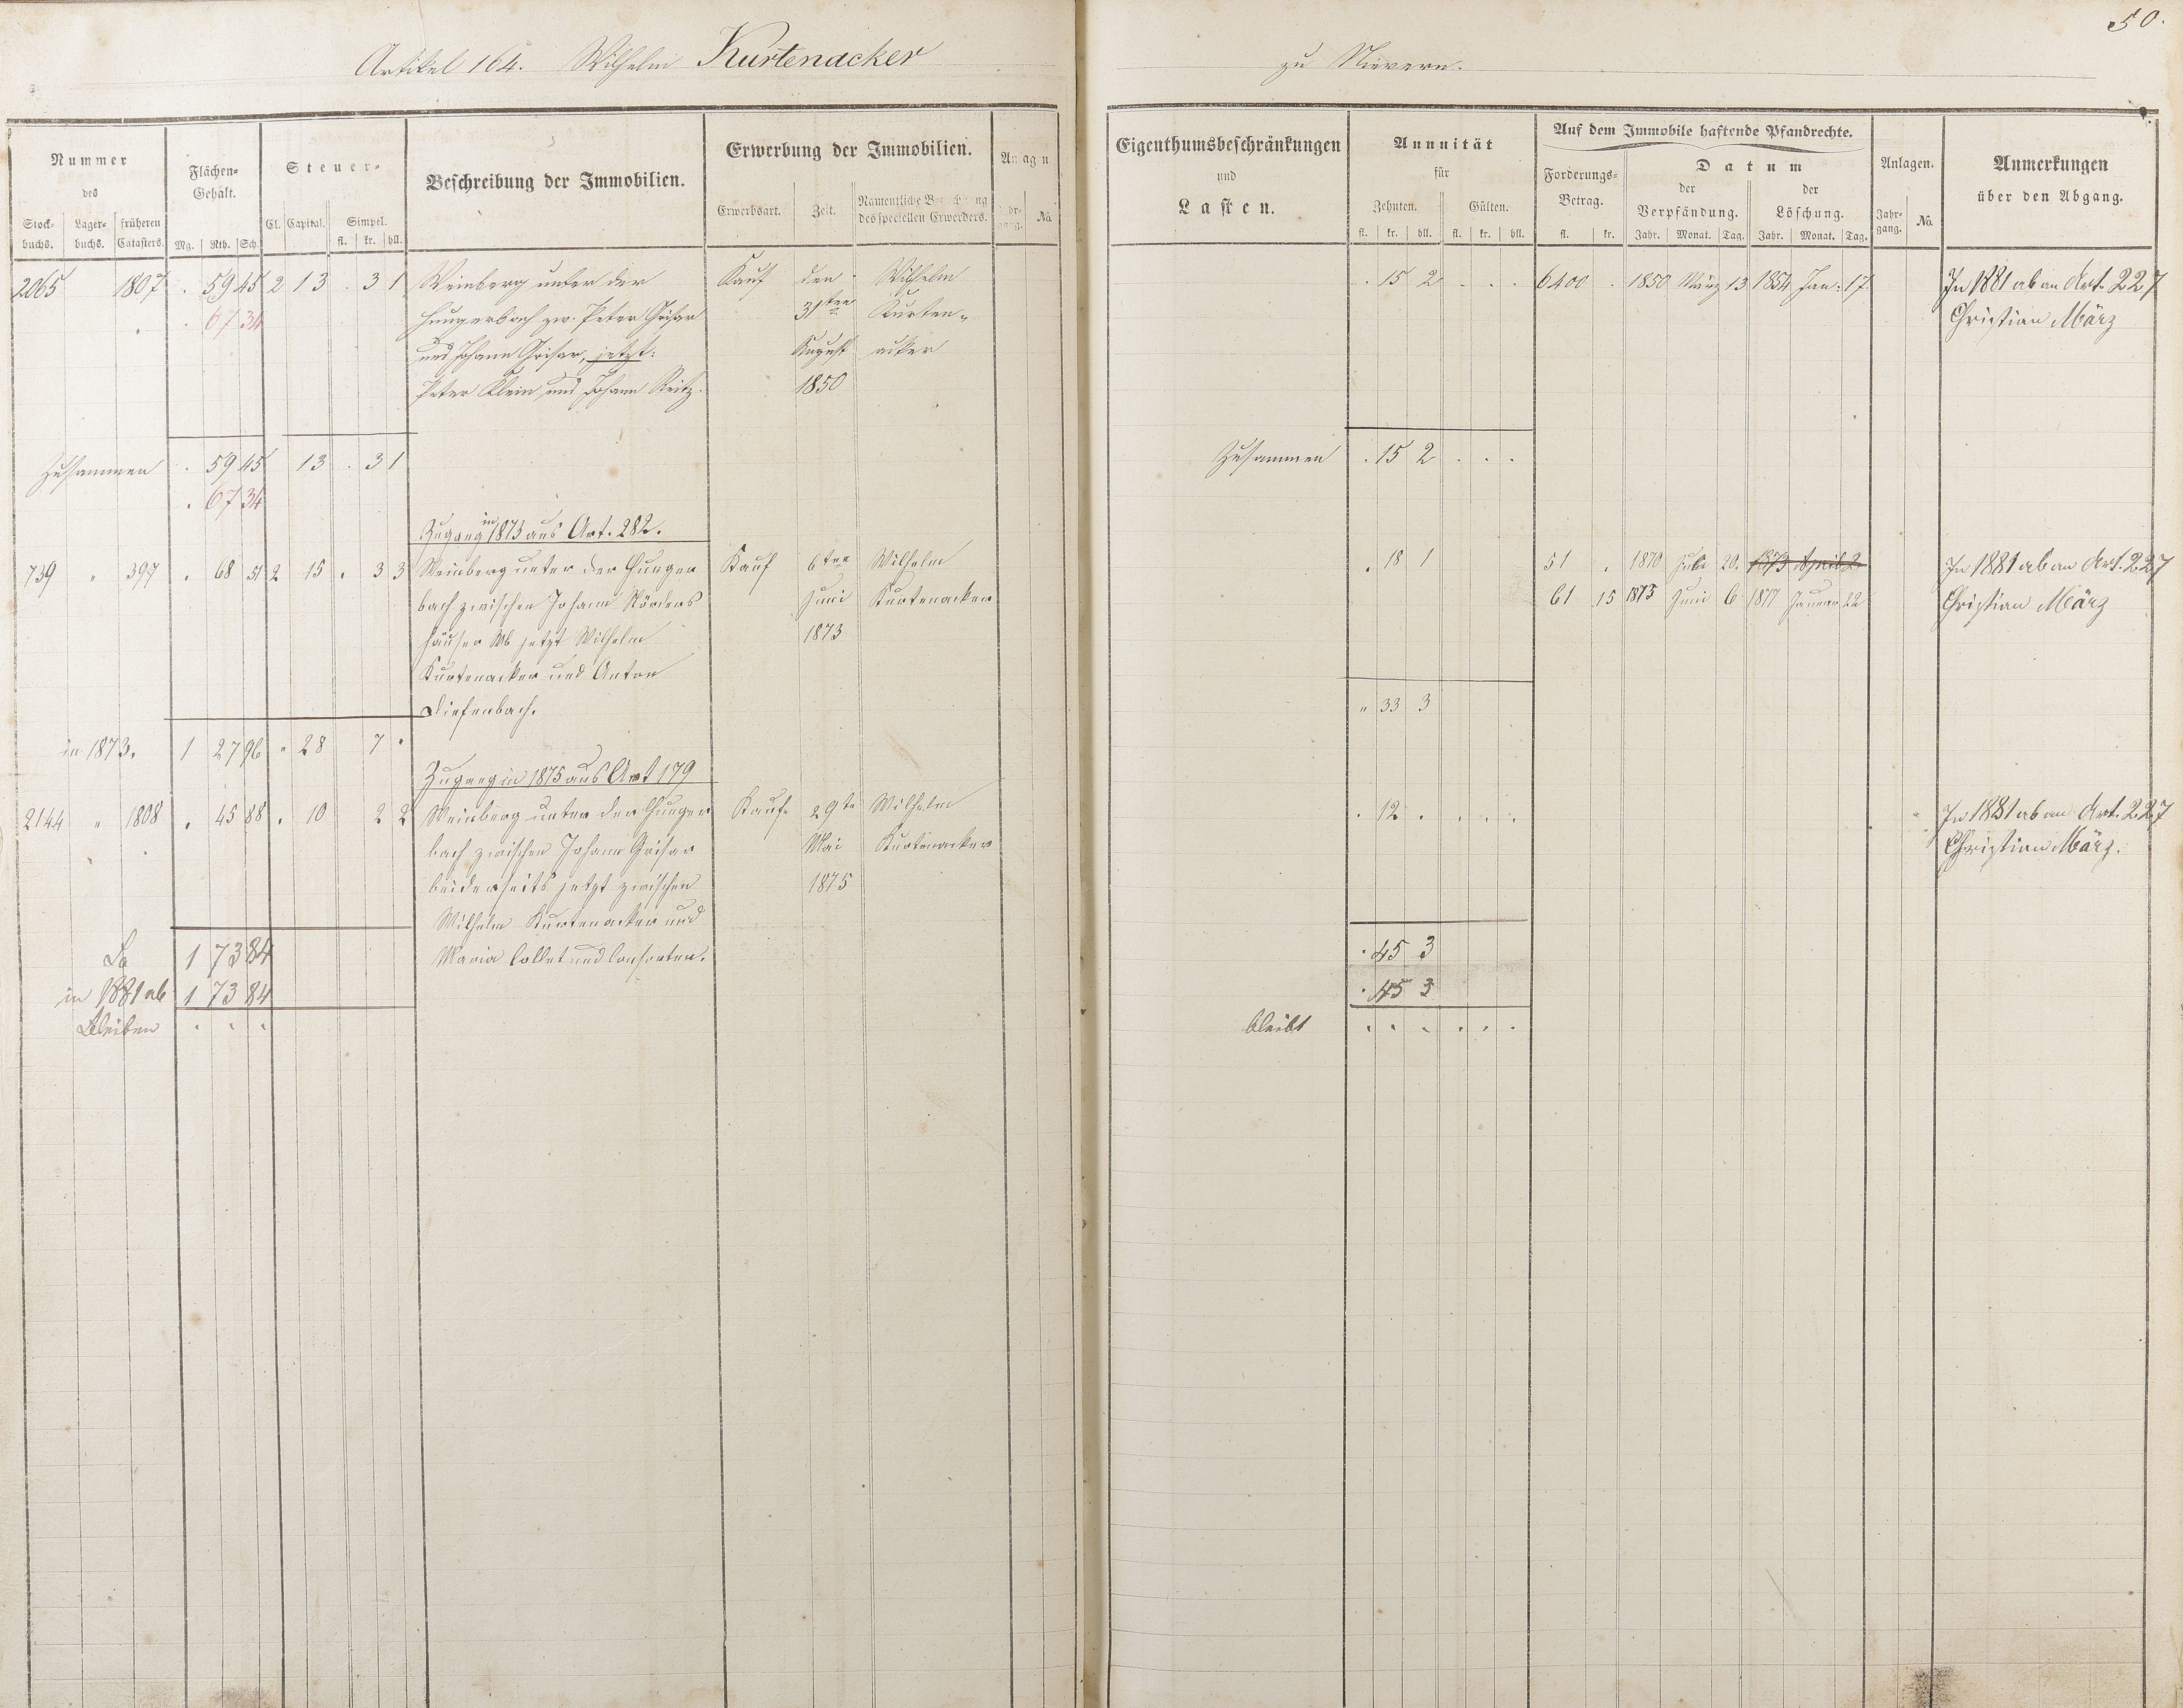 50.
Artikel 164. Wilhelm Kurtenacker zu Nievern.
Nummer
des
Stock-buchs. Lager-buchs. früheren Catasters.
Flächen-
Gehalt.
Mg. Rth. Sch.
Steuer-
Cl. Capital. Simpel.
fl. kr. hll.
Beschreibung der Immobilien.
Erwerbung der Immobilien.
Erwerbsart. Zeit. Namentliche
des speciellen Erwerbers.
No.
Eigenthumsbeschränkungen
und
Lasten.
Annuität
für
Zehnten. Gülten.
fl. kr. hll. fl. kr. hll.
Auf dem Immobile haftende Pfandrechte.
Forderungs-
Betrag.
fl. kr.
Datum
der Verpfändung. der Löschung.
Jahr. Monat. Tag. Jahr. Monat. Tag.
Anlagen.
Jahr-gang. No.
Anmerkungen
über den Abgang.
2065 1807 . 59 45 2 13 . 3 1 Weinberg unter der Kauf den Wilhelm . 15 2 . . . 6400 . 1850 März 13 1854 Jan. 17. In 1881 ab an Art. 227
. 67 34 Hungerbach zw. Peter Grisar 31ten Kurten- Christian März
und Johann Grisar, jetzt: August acker
Peter Klein und Johann Reitz. 1850
Zusammen . 59 45 13 . 3 1 Zusammen . 15 2 . . .
. 67 34
Zugang in 1873 aus Art. 282.
739 " 397 . 68 51 2 15 . 3 3 Weinberg unter der Hunger Kauf 6ten Wilhelm . 18 1 51 . 1870 Juli 20. 1873 April 2. In 1881 ab an Art. 227
bach zwischen Johann Juni Kurtenacker 61 15 1873 Juni 6 1877 Januar 22 Christian März
häuser Wb jetzt Wilhelm 1873
Kurtenacker und Anton
Diefenbach. " 33 3
in 1873. 1 27 96 " 28 7 .
Zugang in 1875 aus Art 179
2144 " 1808 . 45 88 . 10 2 2 Weinberg unter der Hunger Kauf 29te Wilhelm . 12 . . . . In 1881 ab an Art. 227
bach zwischen Johann Grisar Mai Kurtenacker Christian März.
beiderseits jetzt zwischen 1875
Wilhelm Kurtenacker und
Maria Collet und Consorten.
Sa 1 73 84 . 45 3
in 1881 ab 1 73 84 . 45 3
Bleiben . . . bleibt . . . . . .